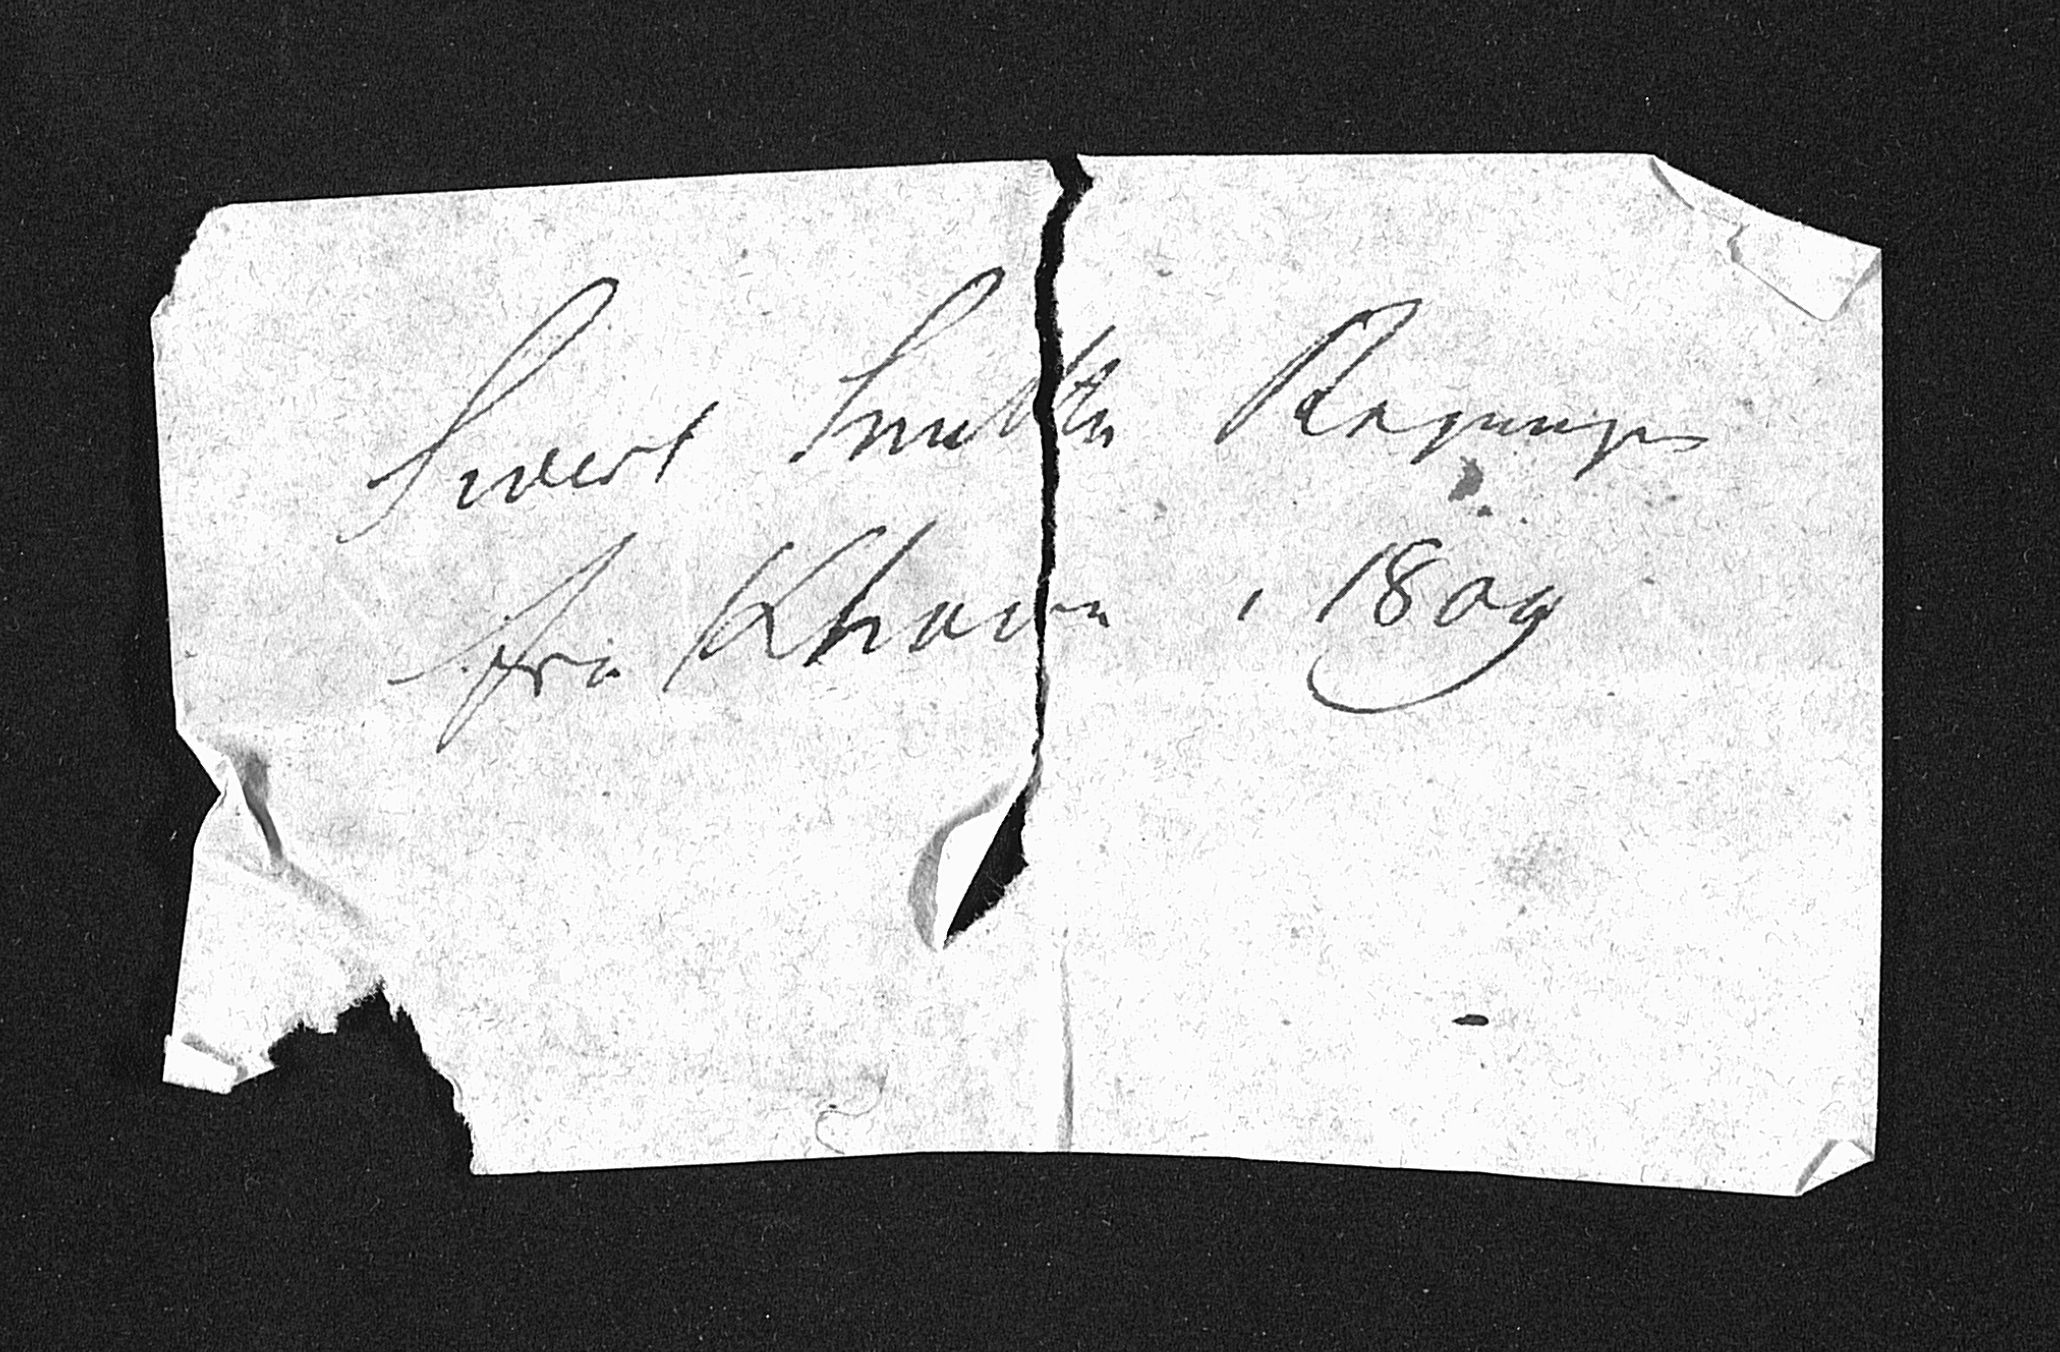 Sivert Smitts Regninger
fra Khavn i 1809